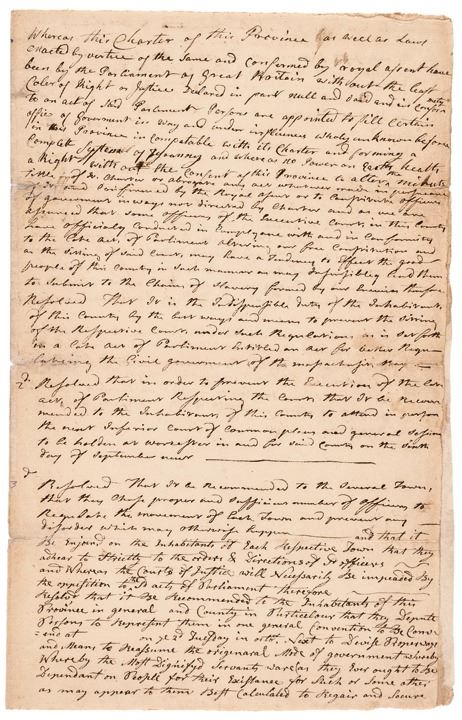 Whereas this Charter of this Province as well as Laws
enacted by vertue of the Same and confirmed by royal assent have
been by the Parliament of Great Britain without the least
Coler of Right or Justice Declard in part null and void and in Conformity
to an act of Said Parliment Persons are appointed to fill certain
offices of Goverment in Way and under influences wholy unknown before
in this Province incompatable with its Charter and forming a
Compleat System of Tyranny and whereas no Power on Earth hath
a Right without the Consent of this Province to alter the minutest
title of its Charter or abrogate any act whatever made in
and confirmed by the Royal assent or to Constitute officers
of government in ways not directed by Charter and as we are
assured that some officers of the Executive Courts in this County
have officially conducted in Complyance with and in Conformity
to the late acts of Parliment altering our free Constitution and
as the Sitting of Said Courts may have a Tendency to affect the good
people of this County in Such manner as may insensibly lead them
to Submit to the Chains of Slavery forged by our Enemies therefore
Resolved That it is the Indispensible duty of the Inhabitants
of this County by the best ways and means to prevent the Sitting
of the Respective Courts under Such Regulations as is Set forth
in a late Act of Parliment Entitled an act for better Regu-
lateing the Civil government of the
2d Resolved that in order to prevent the Execution of the late
act of Parliment Respecting the Courts that it be recom
mended to the Inhabitants of this County to attend in person
the next Inferior Court of Common pleas and general Sessions
to be holden at Worcester in and for said County on the Sixth
day of September next
3 Resolved That it be Recommended to the Several Towns
that they Chose proper and Sufficient number of Officers to
Regulate the movement of Each Town and prevent any
disorders which may otherwise happen and that it
Be Enjoind on the Inhabitants of Each Respective Town that they
adhear to Strictly to the orders & Directions of Sd officers
and Whereas the Courts of Justice will Necessarily be impeaded by
the oppesition to the Sd acts of Parliament therefore
Resolved that it be Recommended to the Inhabitants of this
Province in general and County in Particelour that they Depute
Persons to Represent them in one general Convention to Be Conve
=end at on Tuesday in Next to Devise Proper ways
and Means to Reassume the origenaral Mode of government whereby
Whereby the Most Dignifyd Servants ware as they Ever ought to Be
Dependant on People for their Existance for Such or Some other
as may appear to them Best Calculated to Regair and Secure